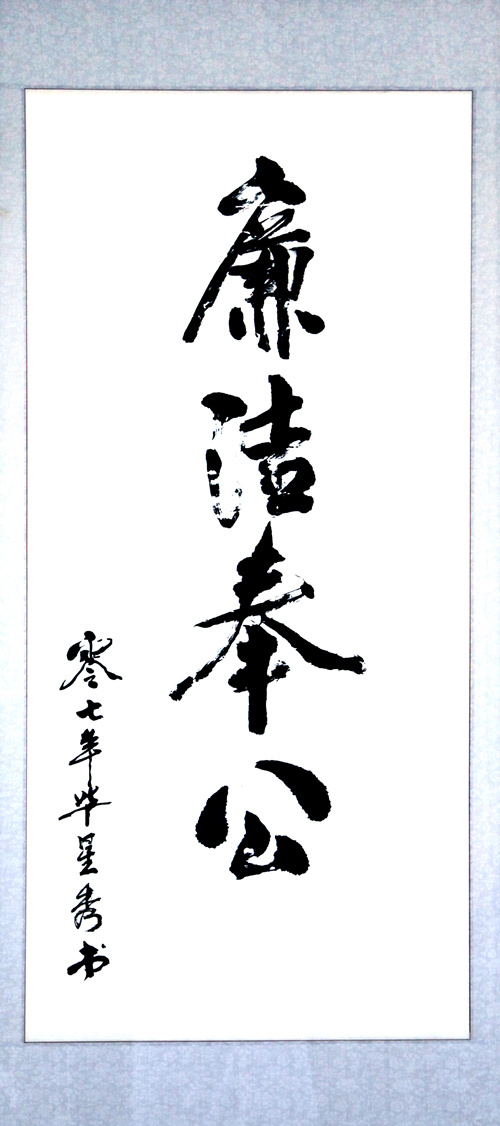 廉洁奉公
零七年毕星秀书